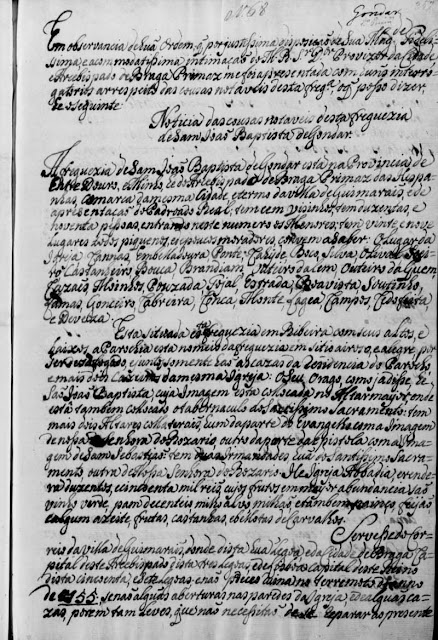 Nº 68
Gondar
Em observancia de Sua Ordem, q por justissima disposição de Sua Mag.de Fideis-
sima, e acomodatissima intimação do M. R. S.r D.or Provezor da Cidade
e Arcebispado de Braga Primaz me foi aprezentada com os interro-
gatorios arrespeito das cousas notaveis desta freg.a o q posso dizer,
he o seguinte
Noticia das cousas notaveis desta freguezia
de Sam João Baptista de Gondar.
A freguezia de Sam João Baptista de Gondar está na Provincia de
Entre Douro, e Minho, he do Arcebispado de Braga Primaz das Hespa-
nhas, comarca da mesma Cidade, e termo da villa de Guimarais, e de
aprezentação do Padroado Real, tem cem vezinhos, tem duzentas, e
noventa pessoas, entrando neste numero os Menores; tem vinte, e nove
lugares todos piquenos, e de poucos moradores, convem a Saber: O lugar da
Igreja Cannas, Embelladoura Ponte, Cahide Boco, Silva, Olival,
Castanheiro Bouca Brandiam, Outeiro da Lem, Outeiro da Quem
Cazais, Moinhos, Pouzada, Tojal, Estrada, Boavista, Soutinho,
Ramas, Gomeiro, Cabreira, Conca, Monte, Lagea Campos, Pedrafeita,
e Deveza.
Esta situada esta freguezia em Ribeira com seus altos, e
baixos, a Parochia está no meio da freguezia em sitio airoso, e alegre por
ser desafogado, e junto somente has as cazas da rezidencia do Parocho,
e mais dous Cazeiros da mesma Igreja. O Seu Orago como ja disse he
São João Baptista, cuja Imagem está colocada no Altar mayor, onde
está tambem colocado o tabernaculo do Santissimo Sacramento: tem
mais dois Altares collateraes, um da parte do Evangelho com a Imagem
de nossa Senhora do Rozario, outro da parte da Epistola com a Ima-
gem de Sam Sebastião: tem duas Irmandades hua do Santissimo Sacra-
mento, outra de Nossa Senhora do Rozario. He Igreja Abbadia, e rende-
ra duzentos, e cincoenta mil reis, cujos frutos em mayor abundancia são
vinho verde, pam de centeio milho alvo milham, e tambem painço feijão
e algum azeite, frutas, castanhas, e bolotas de Carvalhos.
Serve-se do Cor-
reio da villa de Guimaraes, donde dista hua legoa, e da Cidade de Braga Ca-
pital deste Arcebispado dista tres legoas, e de Lisboa Capital deste Reino
dista cincoenta, e sete legoas; e não padeceo ruina no terremoto do anno
de 1755. senão alguas aberturas nas paredes da Igreja, e de alguas ca-
zas, porem tam leves, que não necessitão de se reparar ao prezente